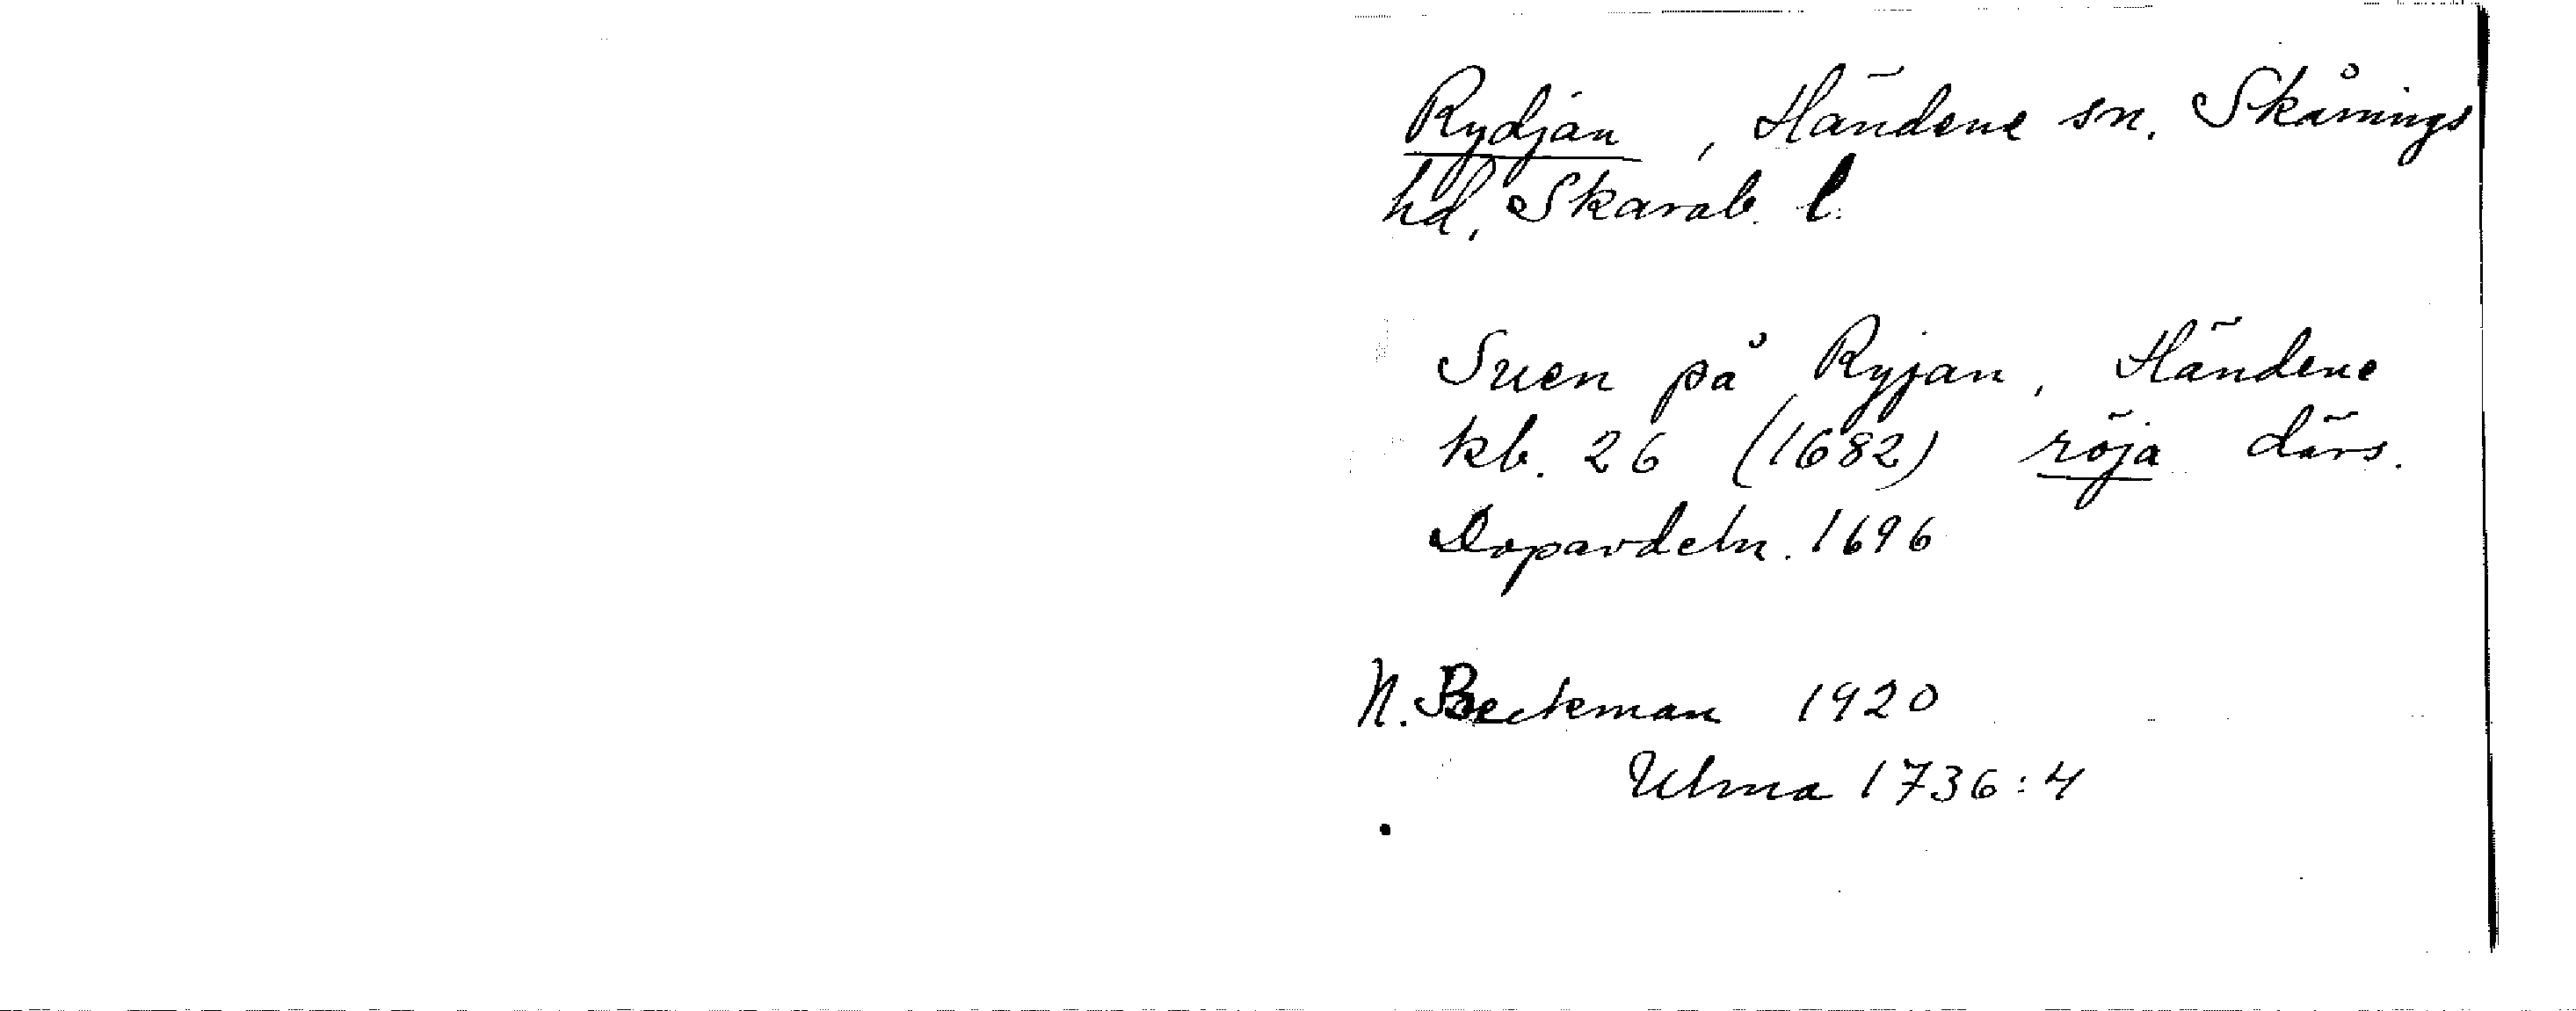 Rydjan, Händene sn. Skånings
hd, Skarab. l.
Sven på Ryjan, Händene
kb. 26 (1682) röja därs.
Dopavdeln. 1696
N. Beckman 1920
Ulma 1736:4